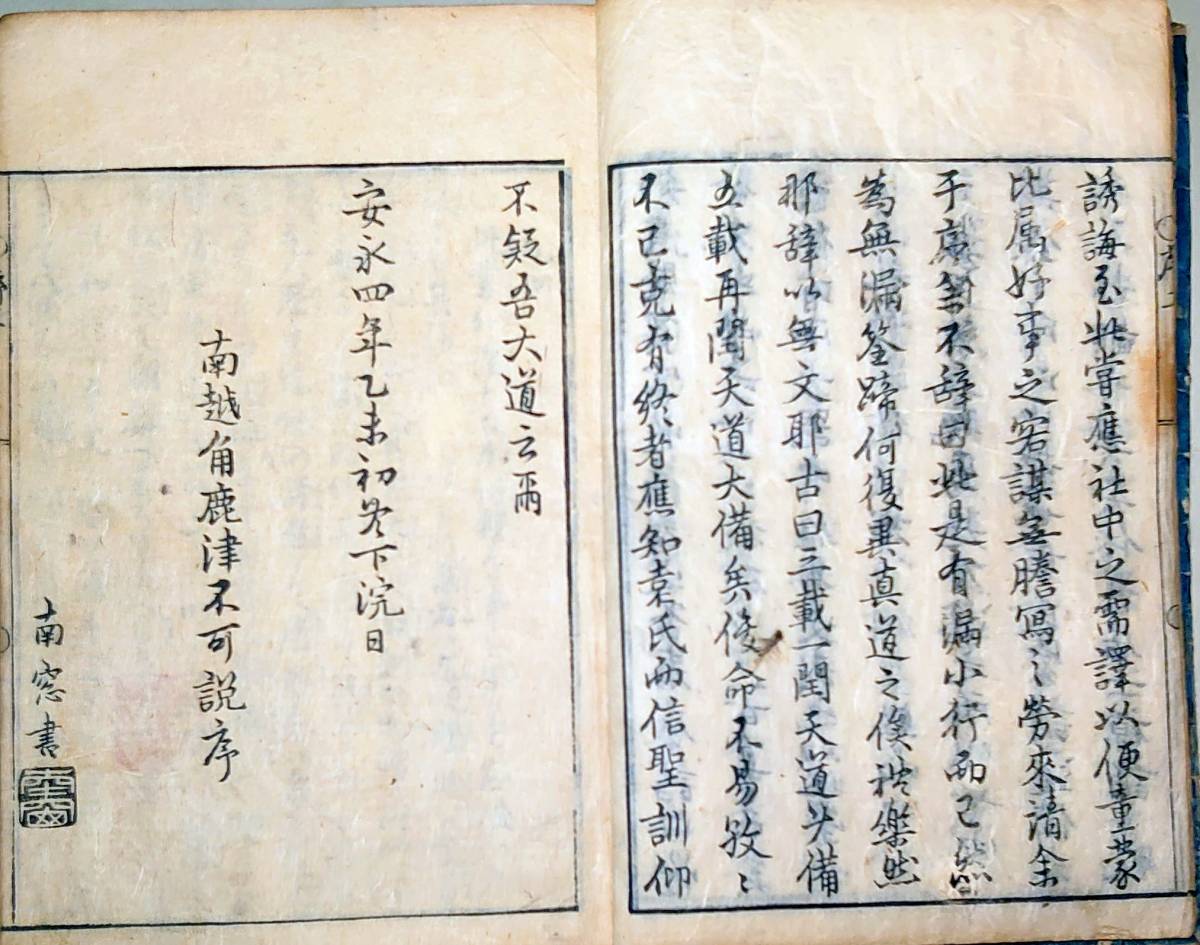 誘誨至此嘗應社中之需譯以便童蒙
比属好事之宕謀無謄寫之勞來請余
于高余不辞曰此是有漏小行而已然
為無漏筌蹄何復異真道之俟礼樂然
耶辞以無文耶古曰三載一閏天道少備
五載再閏天道大備矣俊命不易孜〻
不已克有終者應知袁氏而信聖訓仰
不疑吾大道云爾
安永四年乙未初冬下浣日
南越角鹿津不可説序
南窓書